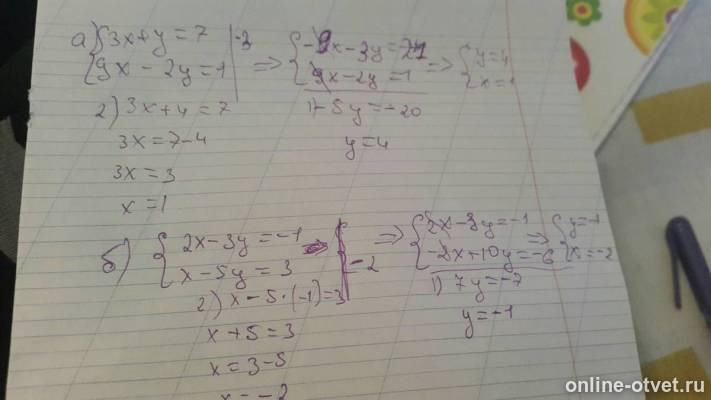 а) {3x+y=7 |·-3
{9x-2y=1 | => {-9x-3y=-21
{9x-2y=1 => {y=4
{x=1
1) -5y=-20
y=4
2) 3x+4=7
3x=7-4
3x=3
x=1
б) {2x-3y=-1
{x-5y=3 |·-2 => {2x-3y=-1
{-2x+10y=-6 => {y=-1
{x=-2
1) 7y=-7
y=-1
2) x-5·(-1)=3
x+5=3
x=3-5
x=-2
online-otvet.ru